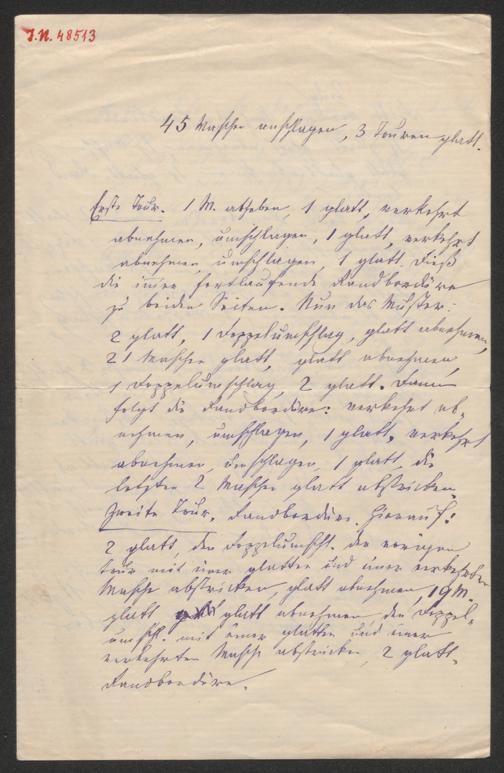 J.N. 48513
45 Maschen anschlagen, 3 Touren glatt.
Erste Tour. 1 M. abheben 1 glatt, verkehrt
abnehmen, umschlagen, 1 glatt, verkehrt
abnehmen umschlagen, 1 glatt. Dieß
die immer fortlaufende Randbordüre
zu beiden Seiten. Nun das Muster:
2 glatt, 1 Doppelumschlag, glatt abnehmen,
21 Maschen glatt, glatt abnehmen,
1 Doppelumschlag, 2 glatt. Dann
folgt die Randbordüre: verkehrt ab-
nehmen, umschlagen, 1 glatt, verkehrt
abnehmen, umschlagen, 1 glatt, die
letzten 2 Maschen glatt abstricken.
Zweite Tour. Randbordüre. Hierauf:
2 glatt, den Doppelumschl. der vorigen
Tour mit einer glatten und einer verkehrten
Masche abstricken, glatt abnehmen, 19 M.
glatt glatt abnehmen, den Doppel-
umschl. mit einer glatten und einer
verkehrten Masche abstricken, 2 glatt.
Randbordüre.